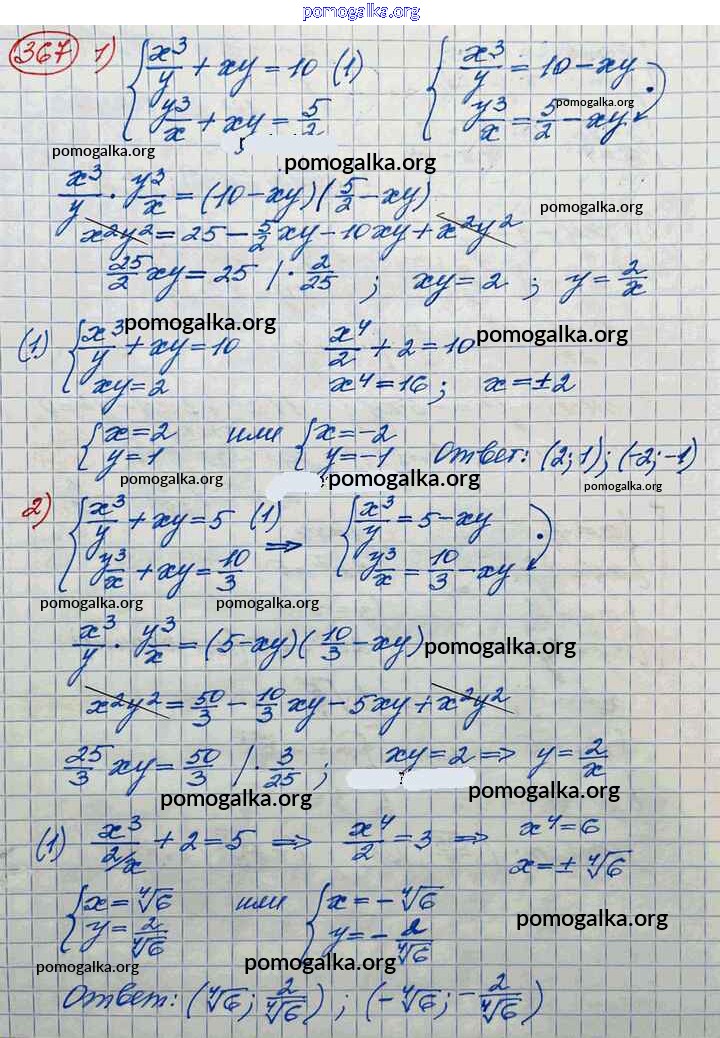 pomogalka.org
367 1) { x³/y + xy = 10 (1) { x³/y = 10 - xy
y³/x + xy = 5/2 y³/x = 5/2 - xy · pomogalka.org
pomogalka.org pomogalka.org
x³/y · y³/x = (10 - xy)(5/2 - xy) pomogalka.org
x²y² = 25 - 5/2 xy - 10xy + x²y²
25/2 xy = 25 / · 2/25 ; xy = 2 ; y = 2/x
pomogalka.org pomogalka.org
(1) { x³/y + xy = 10 x⁴/2 + 2 = 10
xy = 2 x⁴ = 16 ; x = ±2
{ x = 2 или { x = -2
y = 1 y = -1 Ответ: (2; 1); (-2; -1)
pomogalka.org pomogalka.org pomogalka.org
2) { x³/y + xy = 5 (1) { x³/y = 5 - xy
y³/x + xy = 10/3 ⇒ y³/x = 10/3 - xy ·
pomogalka.org pomogalka.org
x³/y · y³/x = (5 - xy)(10/3 - xy) pomogalka.org
x²y² = 50/3 - 10/3 xy - 5xy + x²y²
25/3 xy = 50/3 / · 3/25 ; xy = 2 ⇒ y = 2/x
pomogalka.org pomogalka.org
(1) x³/2/x + 2 = 5 ⇒ x⁴/2 = 3 ⇒ x⁴ = 6
x = ± ⁴√6
{ x = ⁴√6 или { x = - ⁴√6
y = 2/⁴√6 y = - 2/⁴√6 pomogalka.org
pomogalka.org pomogalka.org
Ответ: (⁴√6; 2/⁴√6) ; (-⁴√6; -2/⁴√6)